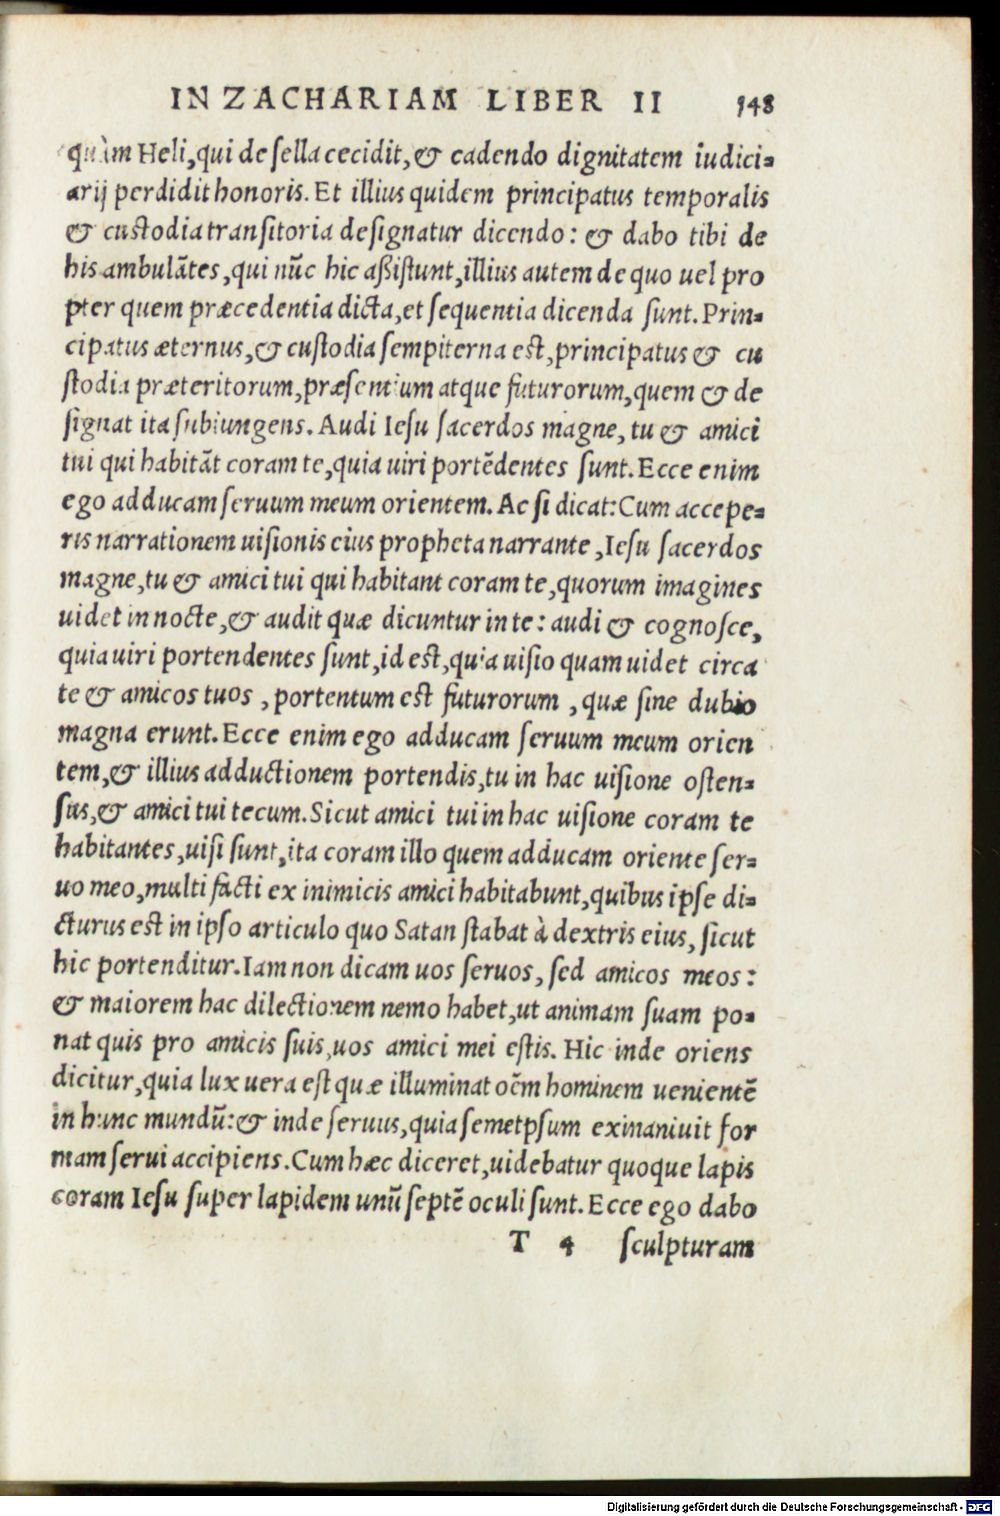 IN ZACHARIAM LIBER II 148
quàm Heli, qui de sella cecidit, & cadendo dignitatem iudici-
arij perdidit honoris. Et illius quidem principatus temporalis
& custodia transitoria designatur dicendo: & dabo tibi de
his ambulãtes, qui nũc hic assistunt, illius autem de quo uel pro
pter quem præcedentia dicta, et sequentia dicenda sunt. Prin-
cipatus æternus, & custodia sempiterna est, principatus & cu
stodia præteritorum, præsentium atque futurorum, quem & de
signat ita subiungens. Audi Iesu sacerdos magne, tu & amici
tui qui habitãt coram te, quia uiri portẽdentes sunt. Ecce enim
ego adducam seruum meum orientem. Ac si dicat: Cum accepe-
ris narrationem uisionis eius propheta narrante, Iesu sacerdos
magne, tu & amici tui qui habitant coram te, quorum imagines
uidet in nocte, & audit quæ dicuntur in te: audi & cognosce,
quia uiri portendentes sunt, id est, quia uisio quam uidet circa
te & amicos tuos, portentum est futurorum, quæ sine dubio
magna erunt. Ecce enim ego adducam seruum meum orien
tem, & illius adductionem portendis, tu in hac uisione osten-
sus, & amici tui tecum. Sicut amici tui in hac uisione coram te
habitantes, uisi sunt, ita coram illo quem adducam oriente ser-
uo meo, multi facti ex inimicis amici habitabunt, quibus ipse di-
cturus est in ipso articulo quo Satan stabat à dextris eius, sicut
hic portenditur. Iam non dicam uos seruos, sed amicos meos:
& maiorem hac dilectionem nemo habet, ut animam suam po-
nat quis pro amicis suis, uos amici mei estis. Hic inde oriens
dicitur, quia lux uera est quæ illuminat oẽm hominem uenientẽ
in hunc mundũ: & inde seruus, quia semetpsum exinaniuit for
mam serui accipiens. Cum hæc diceret, uidebatur quoque lapis
coram Iesu super lapidem unũ septẽ oculi sunt. Ecce ego dabo
T 4 sculpturam
Digitalisierung gefördert durch die Deutsche Forschungsgemeinschaft - DFG